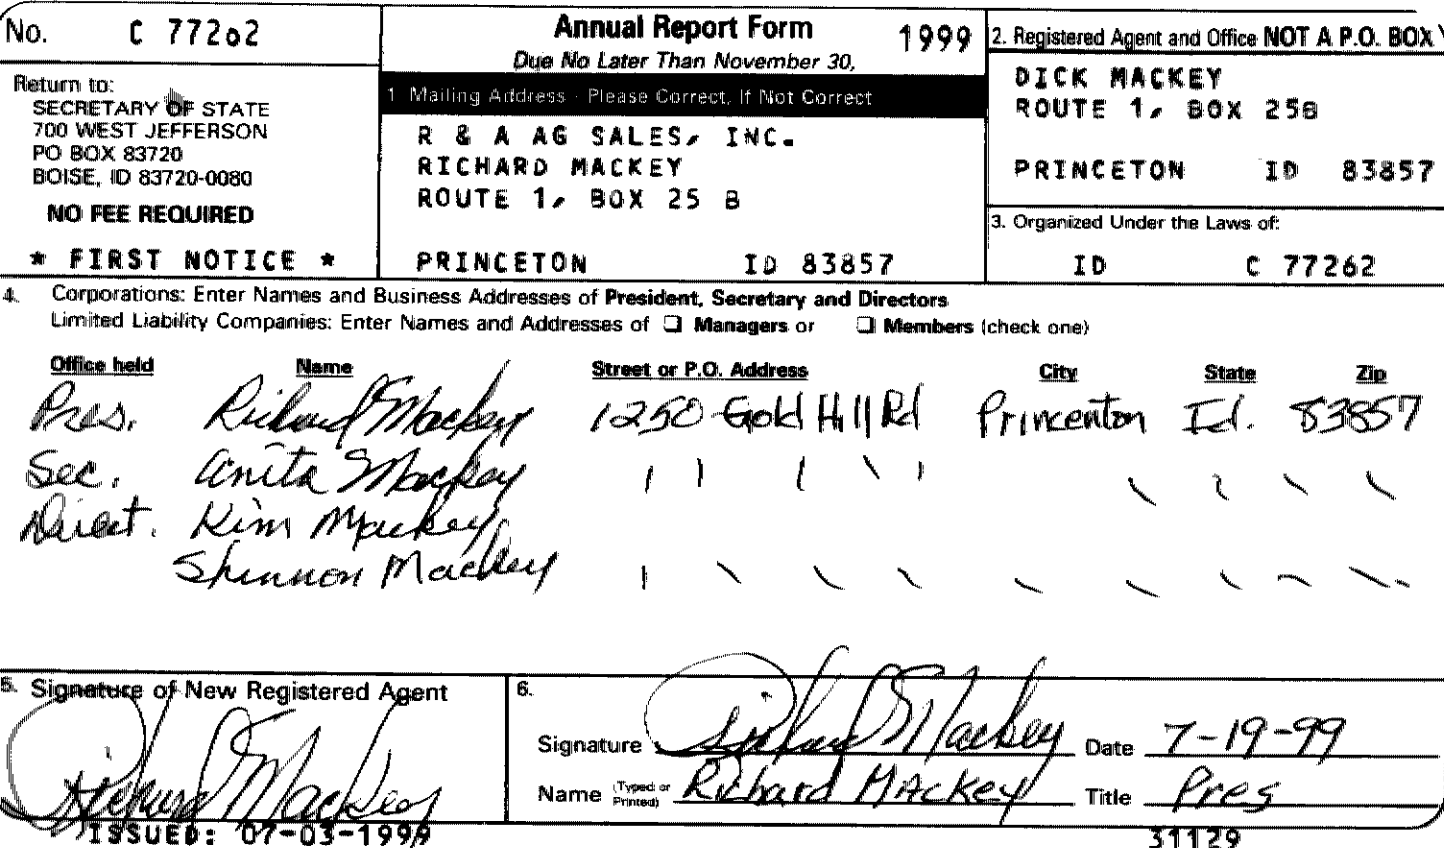 No. C 77262
Annual Report Form 1999
Due No Later Than November 30,
Return to:
SECRETARY OF STATE
700 WEST JEFFERSON
PO BOX 83720
BOISE, ID 83720-0080
NO FEE REQUIRED
* FIRST NOTICE *
1. Mailing Address - Please Correct, If Not Correct
R & A AG SALES, INC.
RICHARD MACKEY
ROUTE 1, BOX 25 B
PRINCETON ID 83857
2. Registered Agent and Office NOT A P.O. BOX
DICK MACKEY
ROUTE 1, BOX 25B
PRINCETON ID 83857
3. Organized Under the Laws of:
ID C 77262
4. Corporations: Enter Names and Business Addresses of President, Secretary and Directors
Limited Liability Companies: Enter Names and Addresses of ❑ Managers or ❑ Members (check one)
Office held Name Street or P.O. Address City State Zip
Pres. Richard Mackey 1250 Gold Hill Rd Princenton Id. 83857
Sec. Anita Mackey
Direct. Kim Mackey
Shannon Mackey
5. Signature of New Registered Agent
Richard Mackey
ISSUED: 07-03-1999
6.
Signature Richard Mackey Date 7-19-99
Name (Typed or Printed) Richard Mackey Title Pres
31129